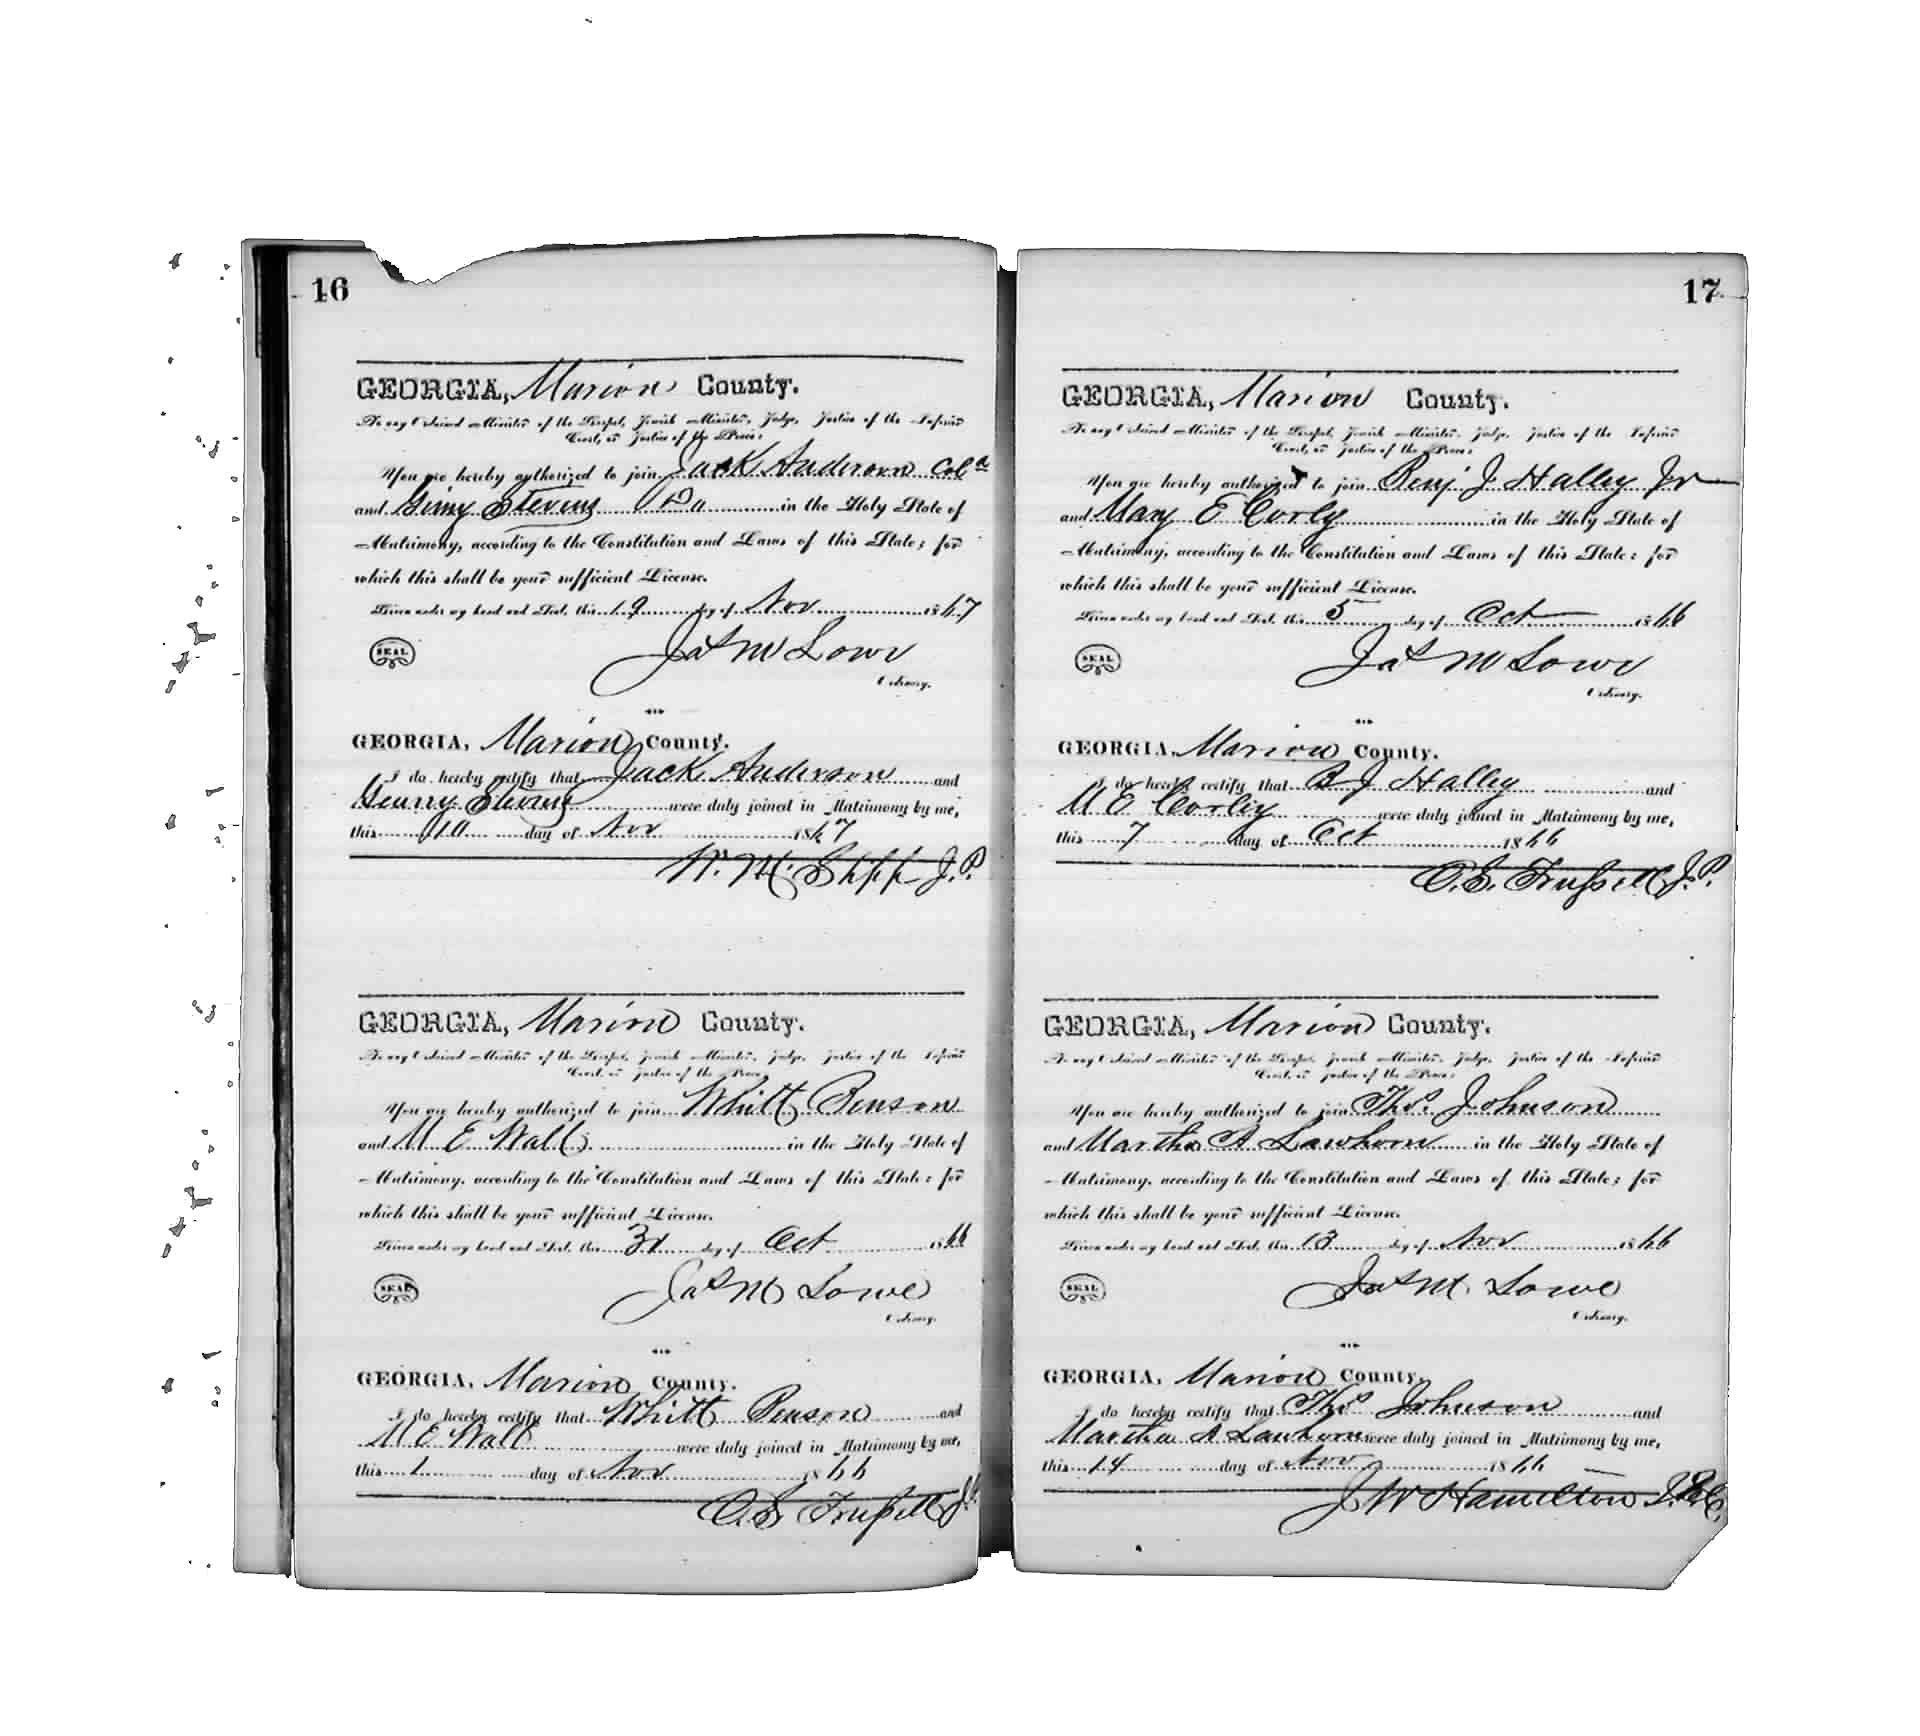 16
GEORGIA, Marion County.
To any Ordained Minister of the Gospel, Jewish Minister, Judge, Justice of the Inferior
Court, or Justice of the Peace:
You are hereby authorized to join Jack Anderson Cold
and Ginny Stevens Do in the Holy State of
Matrimony, according to the Constitution and Laws of this State; for
which this shall be your sufficient License.
Given under my hand and Seal, this 19 day of Nov 1867
SEAL
Jas M Lowe
Ordinary.
GEORGIA, Marion County.
I do hereby certify that Jack Anderson and
Stevens were duly joined in Matrimony by me,
this 10 day of Nov 1867
W. M. J.P.
GEORGIA, Marion County.
To any Ordained Minister of the Gospel, Jewish Minister, Judge, Justice of the Inferior
Court, or Justice of the Peace:
You are hereby authorized to join Whitt Benson
and M E Wall in the Holy State of
Matrimony, according to the Constitution and Laws of this State; for
which this shall be your sufficient License.
Given under my hand and Seal, this 31 day of Oct 1866
SEAL
Jas M Lowe
Ordinary.
GEORGIA, Marion County.
I do hereby certify that Whitt Benson and
M E Wall were duly joined in Matrimony by me,
this 1 day of Nov 1866
C. S. Trussell J.P.
17
GEORGIA, Marion County.
To any Ordained Minister of the Gospel, Jewish Minister, Judge, Justice of the Inferior
Court, or Justice of the Peace:
You are hereby authorized to join Benj J Halley Jr
and Mary E Corley in the Holy State of
Matrimony, according to the Constitution and Laws of this State; for
which this shall be your sufficient License.
Given under my hand and Seal, this 5 day of Oct 1866
SEAL
Jas M Lowe
Ordinary.
GEORGIA, Marion County.
I do hereby certify that B J Halley and
M E Corley were duly joined in Matrimony by me,
this 7 day of Oct 1866
C. S. Trussell J.P.
GEORGIA, Marion County.
To any Ordained Minister of the Gospel, Jewish Minister, Judge, Justice of the Inferior
Court, or Justice of the Peace:
You are hereby authorized to join Thos. Johnson
and Martha A Lawhorn in the Holy State of
Matrimony, according to the Constitution and Laws of this State; for
which this shall be your sufficient License.
Given under my hand and Seal, this 13 day of Nov 1866
SEAL
Jas M. Lowe
Ordinary.
GEORGIA, Marion County.
I do hereby certify that Thos Johnson and
Martha A Lawhorn were duly joined in Matrimony by me,
this 14 day of Nov 1866
J W Hamilton